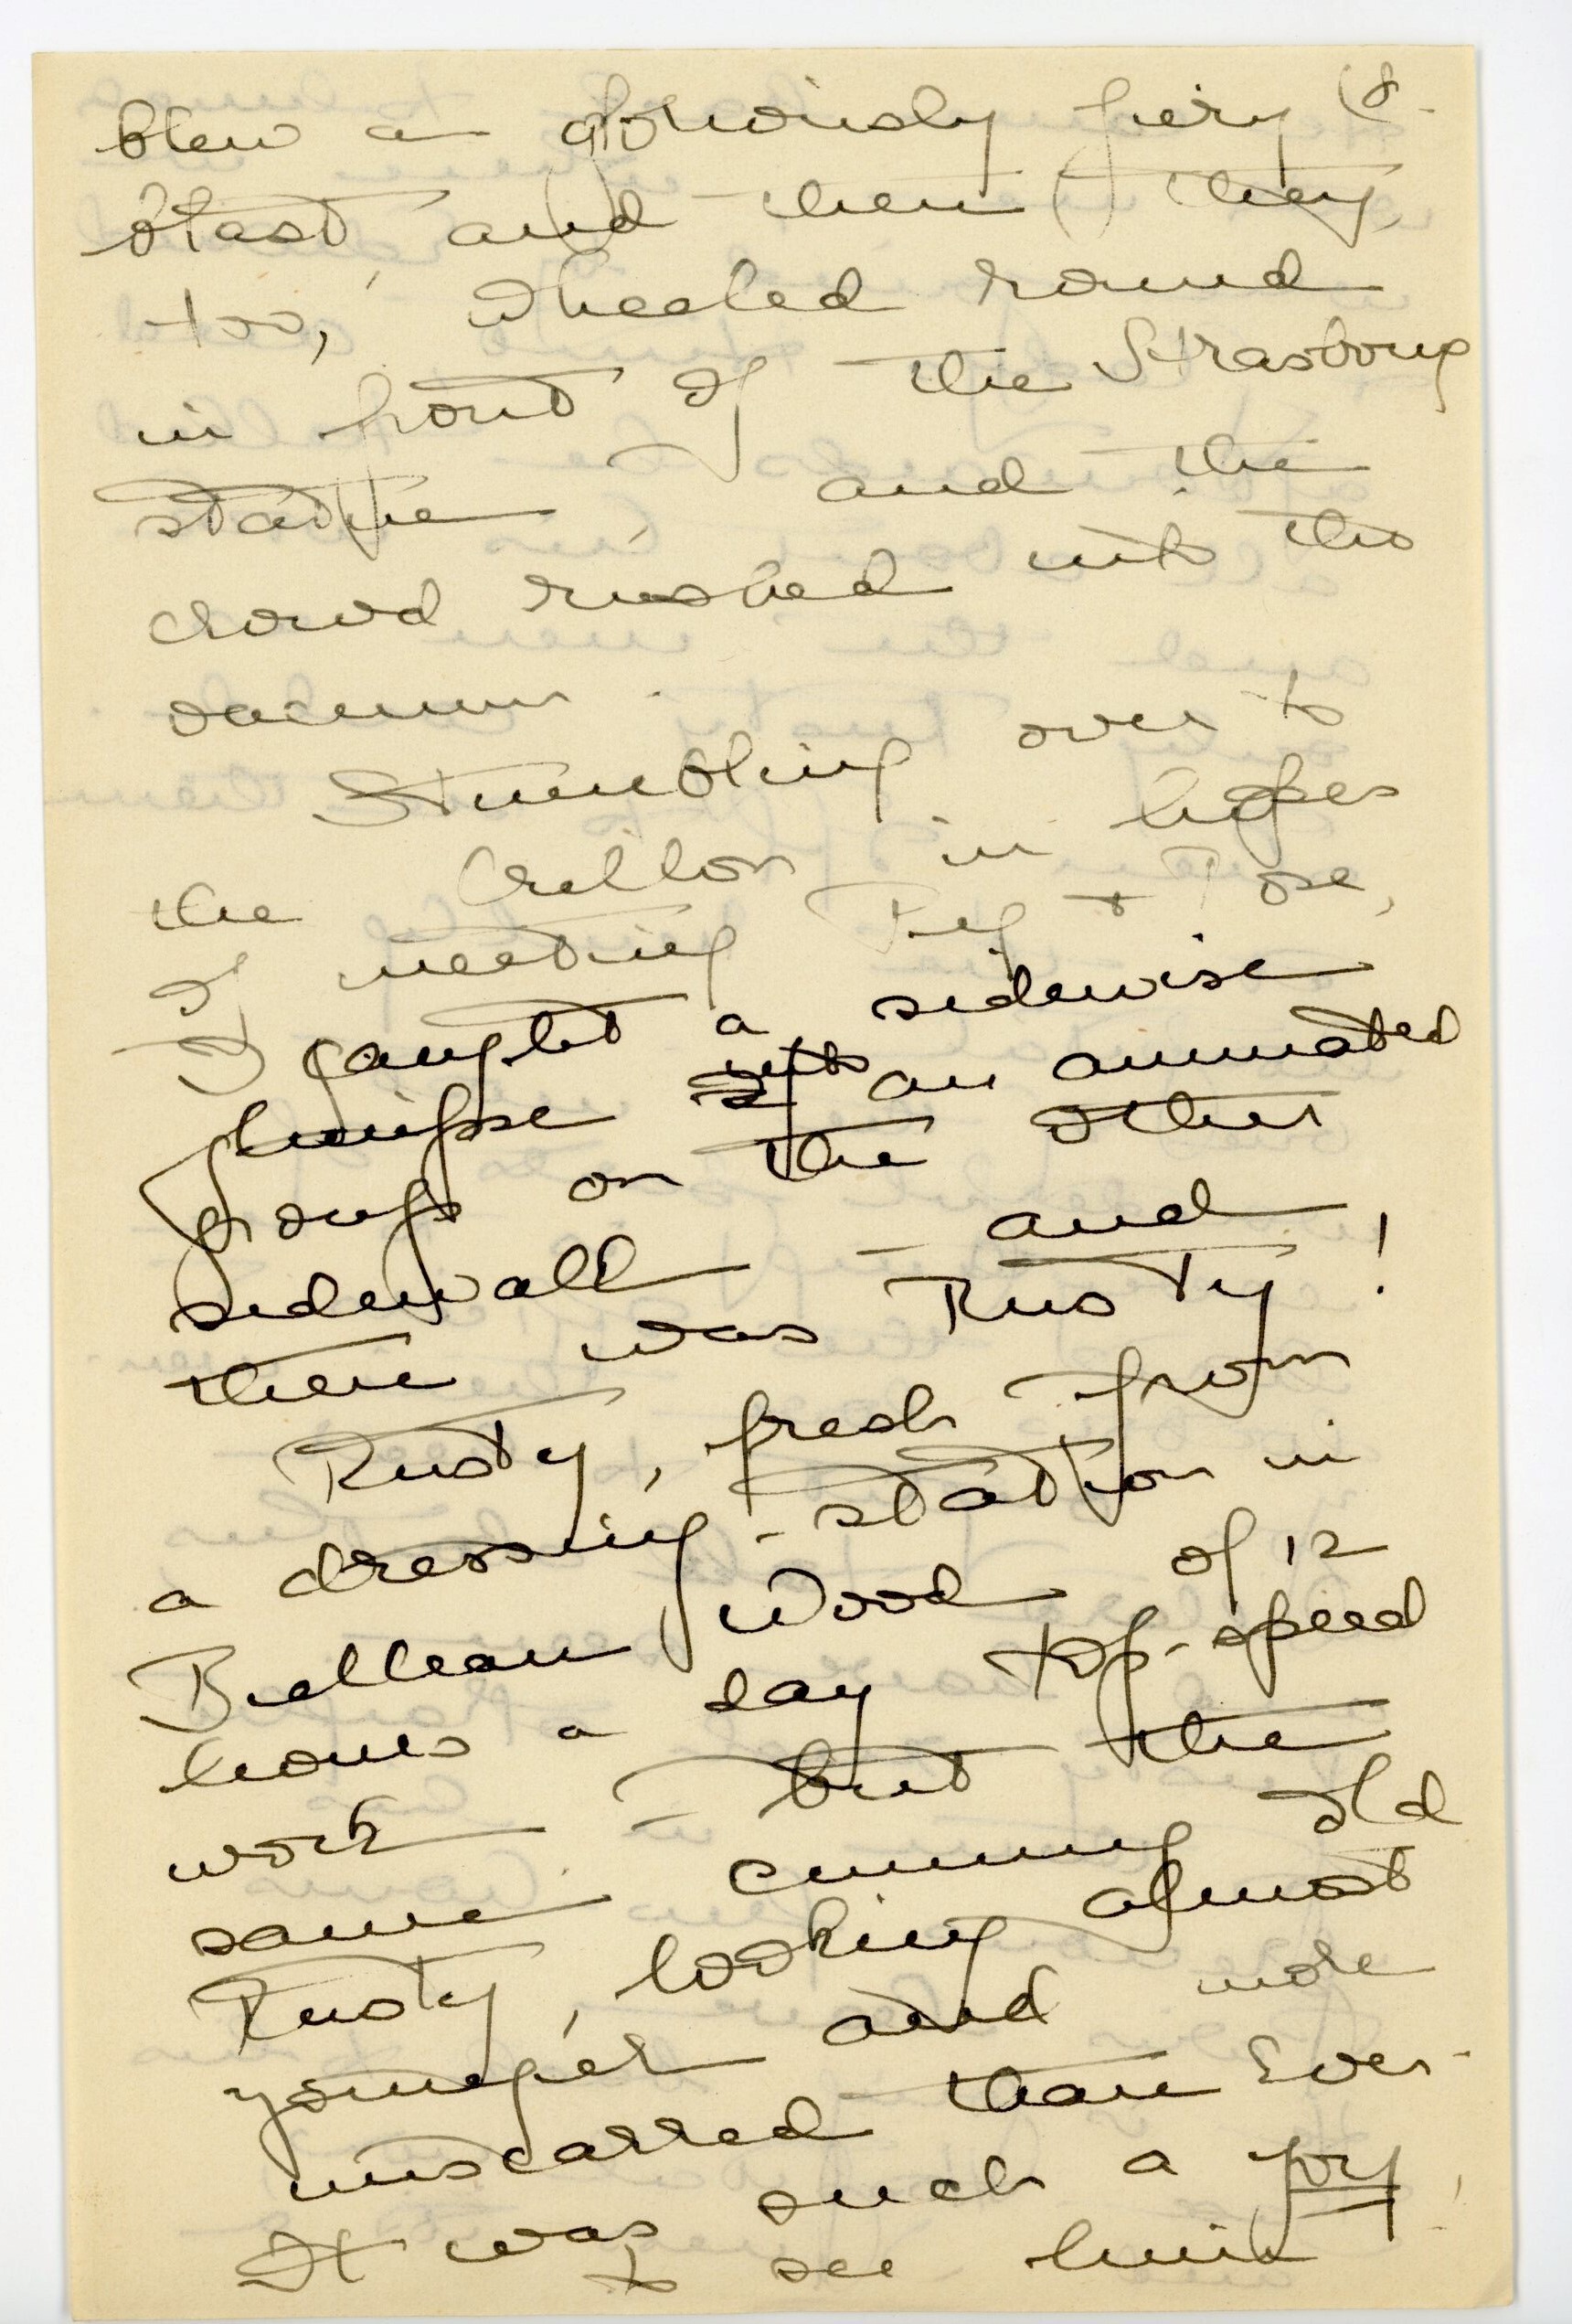 (8.
blew a gloriously fiery
blast, and then they,
too, wheeled round
in front of the Strasbourg
statue, and the
crowd rushed into the
vacuum.
Stumbling over to
the Crillon in hopes
of meeting Peg + Pose,
I caught a sidewise
glimpse into an animated
group on the other
sidewalk – and
there was Rusty!
Rusty, fresh from
a dressing-station in
Belleau Wood of 12
hours a day top-speed
work – but the
same cunning old
Rusty, looking almost
younger and more
unscarred than ever.
It was such a joy
to see him!